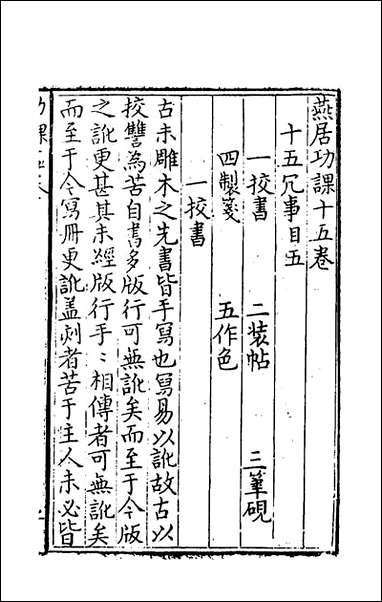 燕居功課十五卷
十五冗事目五
一挍書　二装帖　三筆硯
四製箋　五作色
一挍書
古未雕木之先書皆手寫也寫易以訛故古以
挍讐為苦自書多版行可無訛矣而至于今版
之訛更甚其未經版行手〻相傳者可無訛矣
而至于今寫冊更訛盖刻者苦于主人未必皆